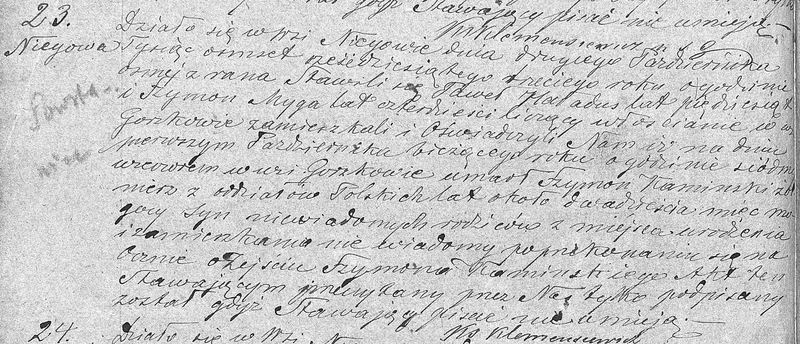 gdyż Stawający pisać nie umieją
23. Działo się w Wsi Niegowie dnia drugiego Października
Xs Klemensiewicz
Niegowa Tysiąc ośmset sześćdziesiątego trzeciego roku o godzinie
ósméj z rana Stawili się Paweł Haładus lat pięćdziesiąt
i Szymon Myga lat czterdzieści liczący włościanie w
Gorzkowie zamieszkali i Oświadczyli Nam iż na dniu
pierwszym Października bieżącego roku o godzinie siódméj
wieczorem w wsi Gorzkowie umarł Szymon Kaminski żoł
nierz z oddziatów Polskich lat około dwadzieścia mięc mo
gący Syn niewiadomych rodziców z miejsca urodzenia
i zamieszkania nie wiadomy po przekonaniu się na
ocznie o zejściu Szymona Kaminskiego Akt ten
Stawającym przeczytany przez Nas tylko podpisany
został gdyż Stawający pisać nie umieją
Xs Klemensiewicz
24. Działo się w Wsi